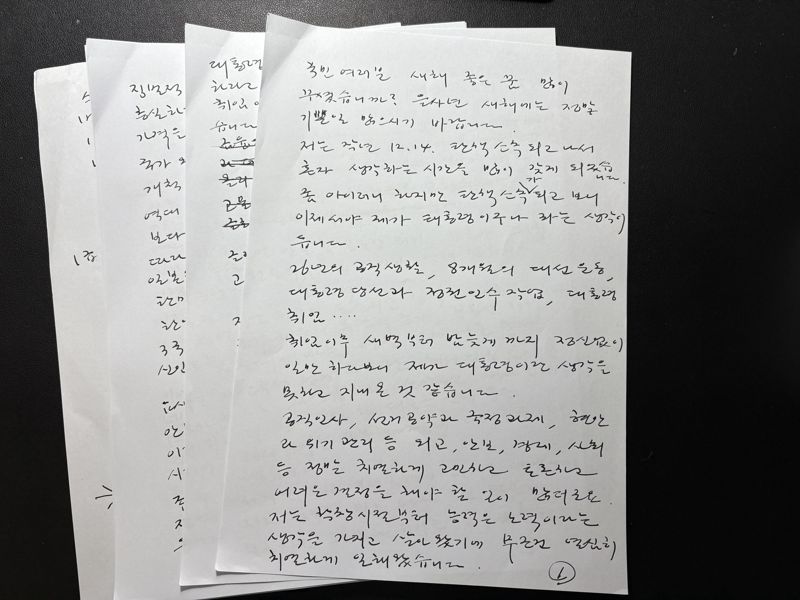 국민 여러분 새해 좋은 꿈 많이
꾸셨습니까? 을사년 새해에는 정말
기쁜일 많으시기 바랍니다.
저는 작년 12.14. 탄핵소추 되고 나서
혼자 생각하는 시간을 많이 갖게 되었습니다.
좀 아이러니 하지만 탄핵소추가 되고 보니
이제서야 제가 대통령이구나 하는 생각이
듭니다.
26년의 공직생활, 8개월의 대선 운동,
대통령 당선과 정권 인수 작업, 대통령
취임 ....
취임이후 새벽부터 밤늦게 까지 정신없이
일만 하다보니 제가 대통령이란 생각을
못하고 지내온 것 같습니다.
공직인사, 선거공약과 국정과제, 현안
과 위기 관리 등 외교, 안보, 경제, 사회
등 정말 치열하게 고민하고 토론하고
어려운 결정을 해야 할 일이 많더군요.
저는 학창시절부터 능력은 노력이라는
생각을 가지고 살아왔기에 무조건 열심히
치열하게 일해왔습니다.
1
대통령
하라고
취임
습니다
고
정치적
충실하
가격은
개혁
역대
보다
따라